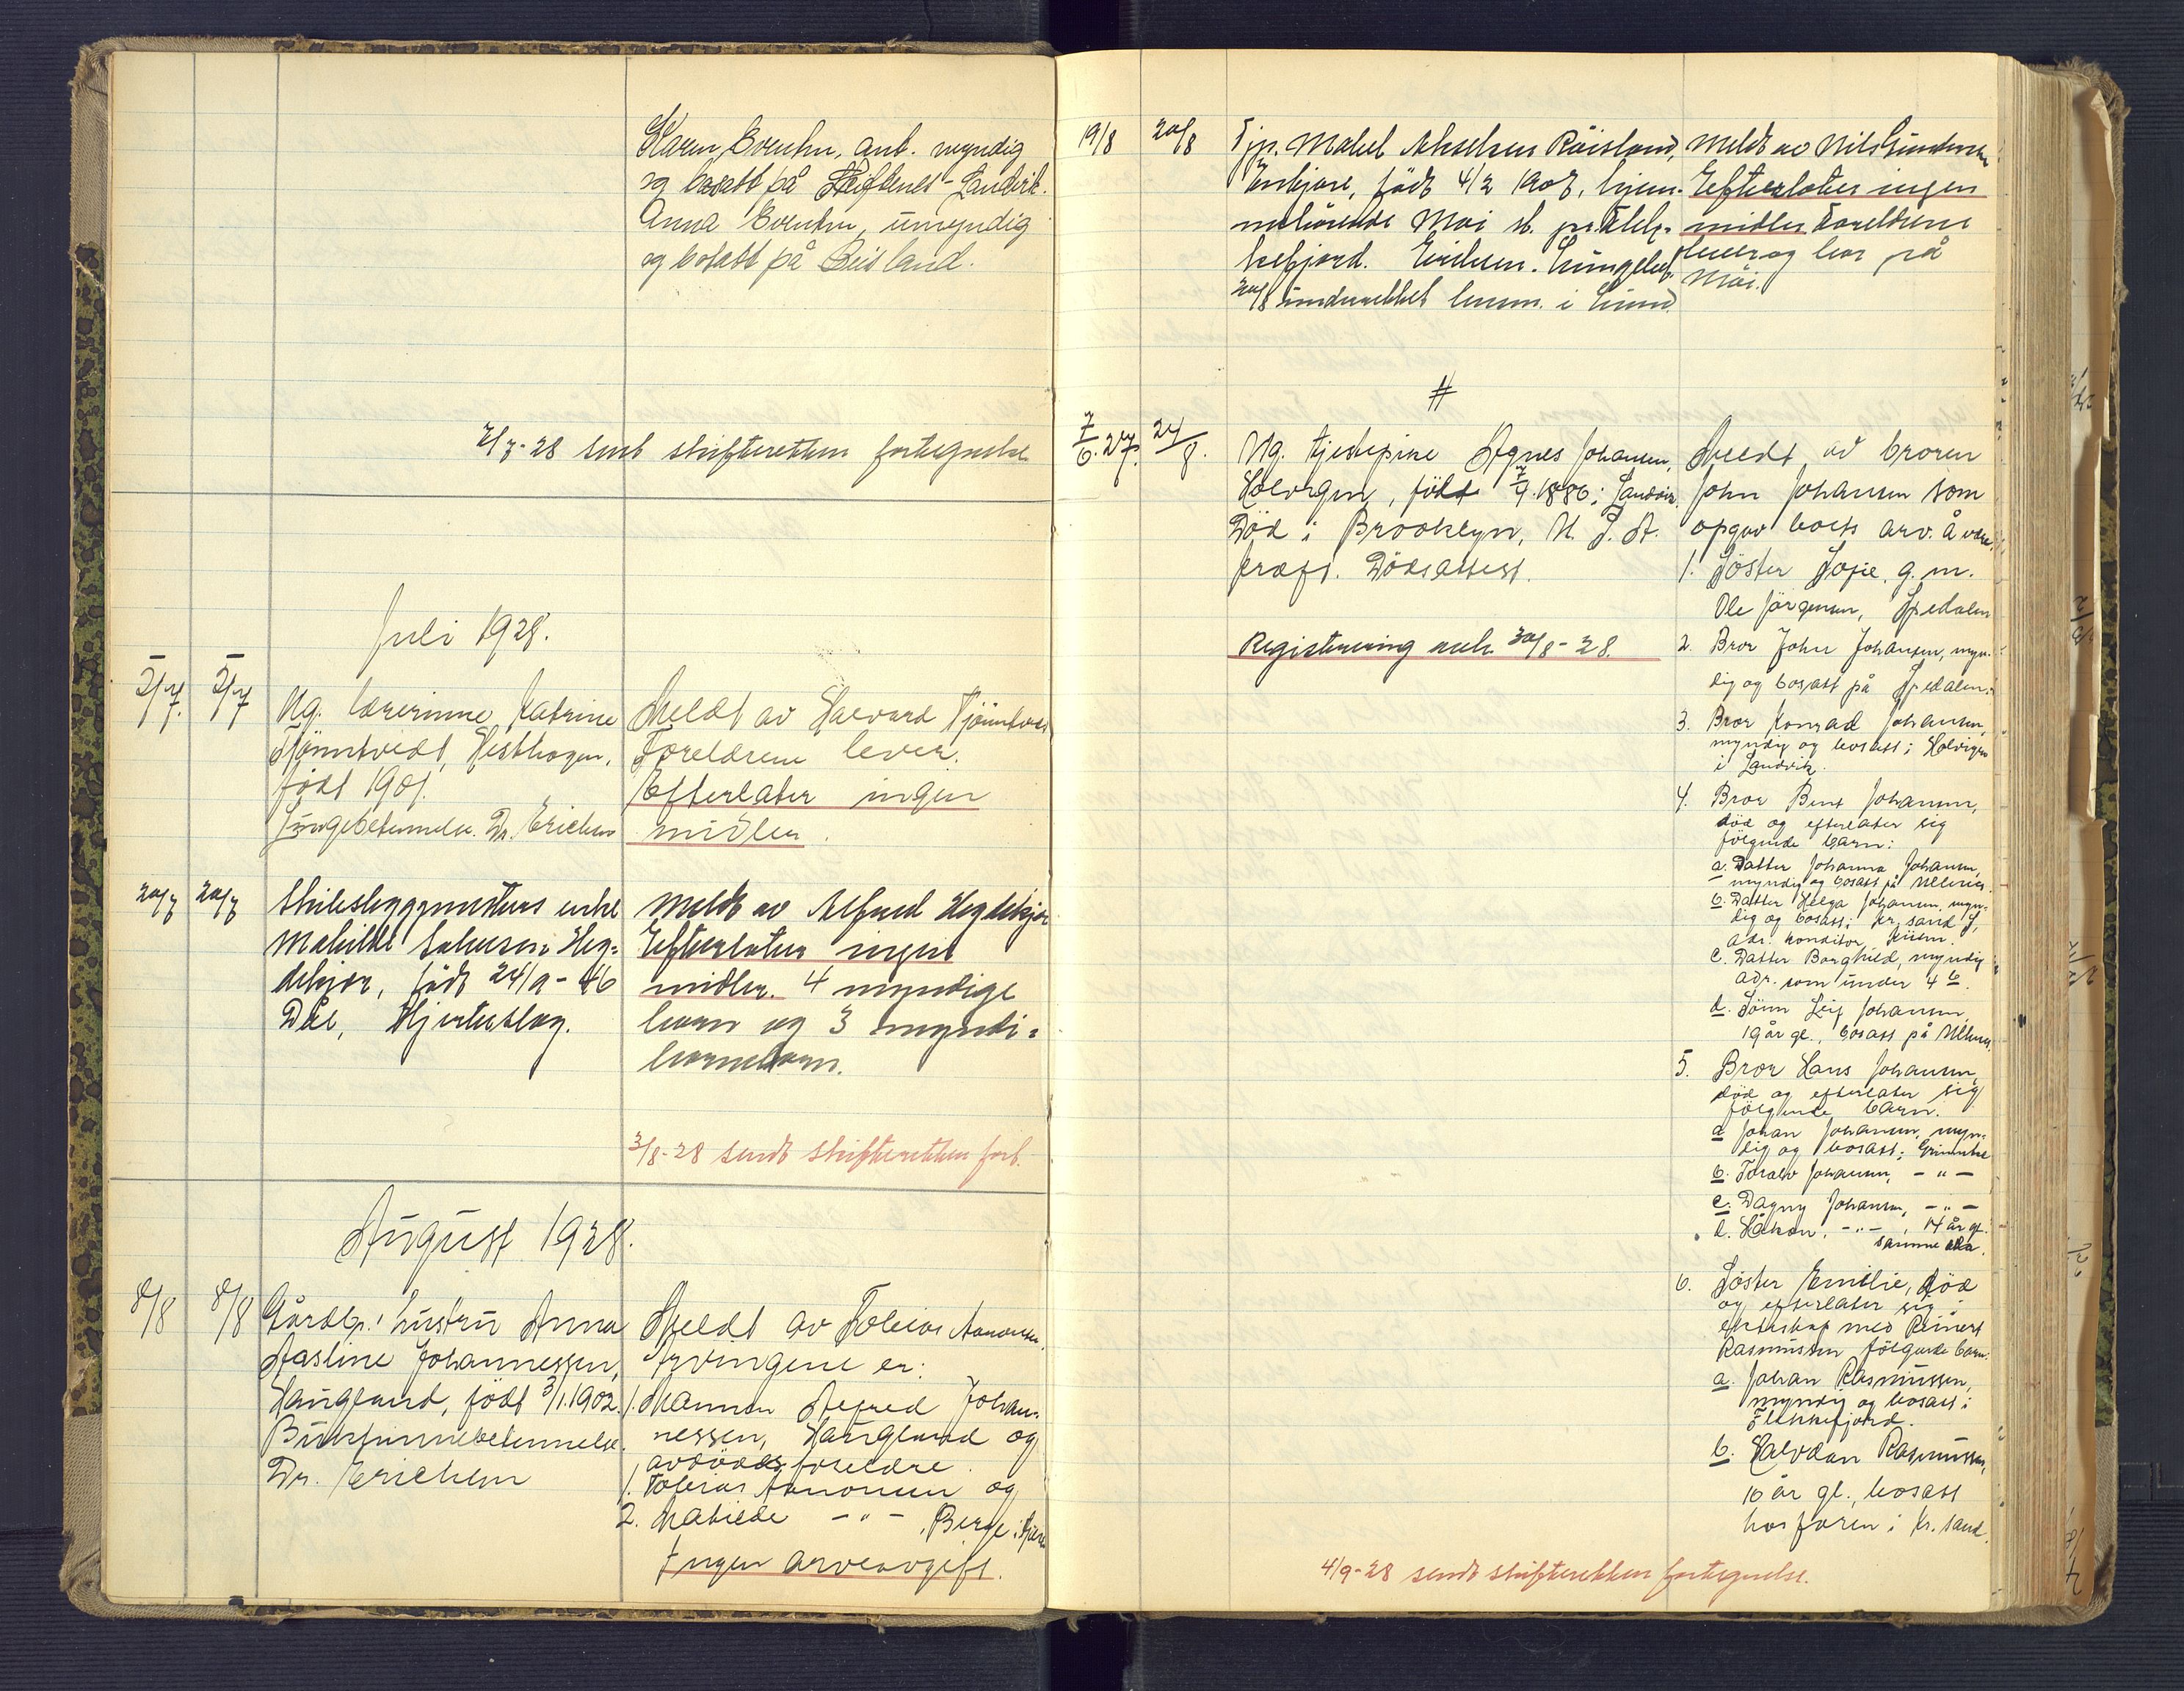 Karen Evensen, ant. myndig
og bosatt på Landvik.
Anna Evensen, umyndig
og bosatt på Beisland.
2/7-28 sendt skifteretten fortegnelse
Juli 1928.
5/7. 5/7
Ug. lærerinne Katrine
Tjönntvedt, Hesthagen,
født 1901.
Lungebetennelse. Dr. Erichsen
Meldt av Halvard Tjönntvedt
Foreldrene lever.
Efterlater ingen
midler.
20/7 20/7
Mathilde Salvesen Heg=
dekjær, født 24/9-46
Død, Hjerteslag.
Meldt av Alfred Hegdekjær
Efterlater ingen
midler. 4 myndige
barn og 3 myndi=
barnebarn.
3/8-28 sendt skifteretten fort.
August 1928.
8/8 8/8
Gårdbr. hustru Anna
Aasline Johannessen,
Haugland, født 3/1.1902.
Dr. Erichsen
Meldt av Tobias Aanonsen.
Arvingene er:
1. Mannen Alfred Johan=
nessen, Haugland og
avdødes foreldre.
1. Tobias Aanonsen og
2. Matilde -"- , Berge i Fjære
Ingen arveavgift.
19/8 20/8
Tjp. Mabel Akselsen Röisland,
født 4/2 1908, hjem-
mehörende Moi st. pr. Flek-
kefjord. Erichsen. Lungebet.
20/8 underrettet lensm. i Lund.
Meldt av Nils Gundersen
Efterlater ingen
midler. Foreldrene
lever og bor på
Moi.
#
7/6.27. 24/8.
Ug. tjenstepike Agnes Johansen,
Holvigen, født 7/9.1886 i Landvik.
Död i Brooklyn, U.S.A.
Fremf. Dödsattest.
Registrering avh. 30/8-28.
Meldt av broren
John Johansen som
opgav boets arv. å være:
1. Söster Sofie, g.m.
Ole Jörgensen, Spedalen
2. Bror John Johansen, myn-
dig og bosatt på Spedalen.
3. Bror Konrad Johansen,
myndig og bosatt i Holvigen
i Landvik.
4. Bror Bent Johansen,
död og efterlater sig
fölgende barn:
a. Datter Johanna Johansen,
myndig og bosatt på Ullenes.
b. Datter Helga Johansen, myn-
dig og bosatt i Kr.sand S,
adr. konditor
c. Datter Borghild, myndig
adr. som under 4 b.
d. Sönn Leif Johansen,
19 år gl., bosatt på Ullenes.
5. Bror Hans Johansen,
död og efterlater sig
fölgende barn.
a. Johan Johansen, myn-
dig og bosatt i Grimstad
b. Toralv Johansen, -"-
c. Dagny Johansen, -"-
d. Håkon, -"- , 14 år gl.
samme adr.
6. Söster Emilie, död
og efterlater sig i
ekteskap med Reinert
Rasmussen fölgende barn.
a. Johan Rasmussen,
myndig og bosatt i
Flekkefjord.
b. Halvdan Rasmussen,
16 år gl., bosatt
hos faren i Kr.sand.
4/9-28 sendt skifteretten fortegnelse.